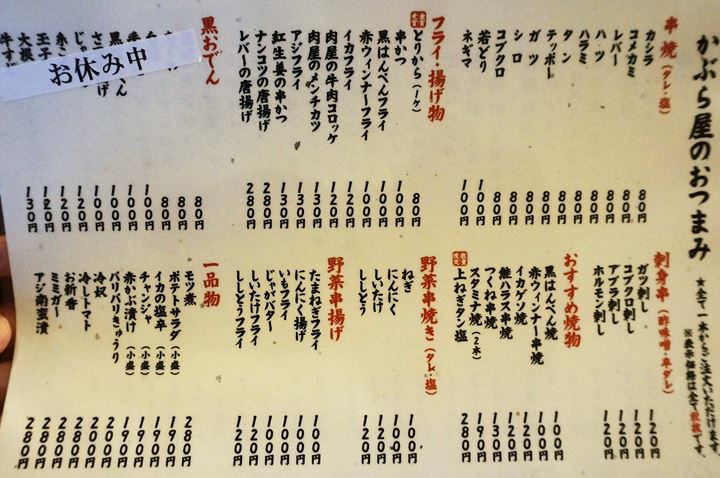 かぶら屋のおつまみ
★全て一本からご注文いただけます。
※表示価格は全て税抜です。
串焼(タレ・塩)
カシラ 80円
コメカミ 80円
レバー 80円
ハツ 80円
ハラミ 80円
タン 80円
テッポー 80円
ガツ 80円
シロ 80円
コブクロ 80円
若どり 100円
ネギマ 100円
フライ・揚げ物
とりから(1ケ) 80円
串かつ 100円
黒はんぺんフライ 100円
赤ウィンナーフライ 100円
イカフライ 120円
肉屋の牛肉コロッケ 120円
肉屋のメンチカツ 130円
アジフライ 130円
紅生姜の串かつ 130円
ナンコツの唐揚げ 280円
レバーの唐揚げ 280円
黒おでん
お休み中
80円
80円
80円
100円
100円
100円
100円
120円
120円
玉子 120円
大根 130円
刺身串(酢味噌・辛ダレ)
ガツ刺し 120円
コブクロ刺し 120円
アブラ刺し 120円
ホルモン刺し 120円
おすすめ焼物
黒はんぺん焼 100円
赤ウィンナー串焼 100円
イカゲソ焼 120円
鮭ハラス串焼 120円
つくね串焼 130円
スタミナ焼(2本) 190円
上ねぎタン塩 280円
野菜串焼き(タレ・塩)
ねぎ 100円
にんにく 100円
しいたけ 120円
ししとう 120円
野菜串揚げ
たまねぎフライ 100円
にんにく揚げ 100円
いもフライ 100円
じゃがバター 100円
しいたけフライ 120円
ししとうフライ 120円
一品物
モツ煮 280円
ポテトサラダ(小盛) 190円
イカの塩辛(小盛) 190円
チャンジャ(小盛) 190円
赤かぶ漬け(小盛) 190円
パリパリきゅうり 200円
冷奴 200円
冷しトマト 280円
お新香 280円
ミミガー 280円
アシ南蛮漬 280円